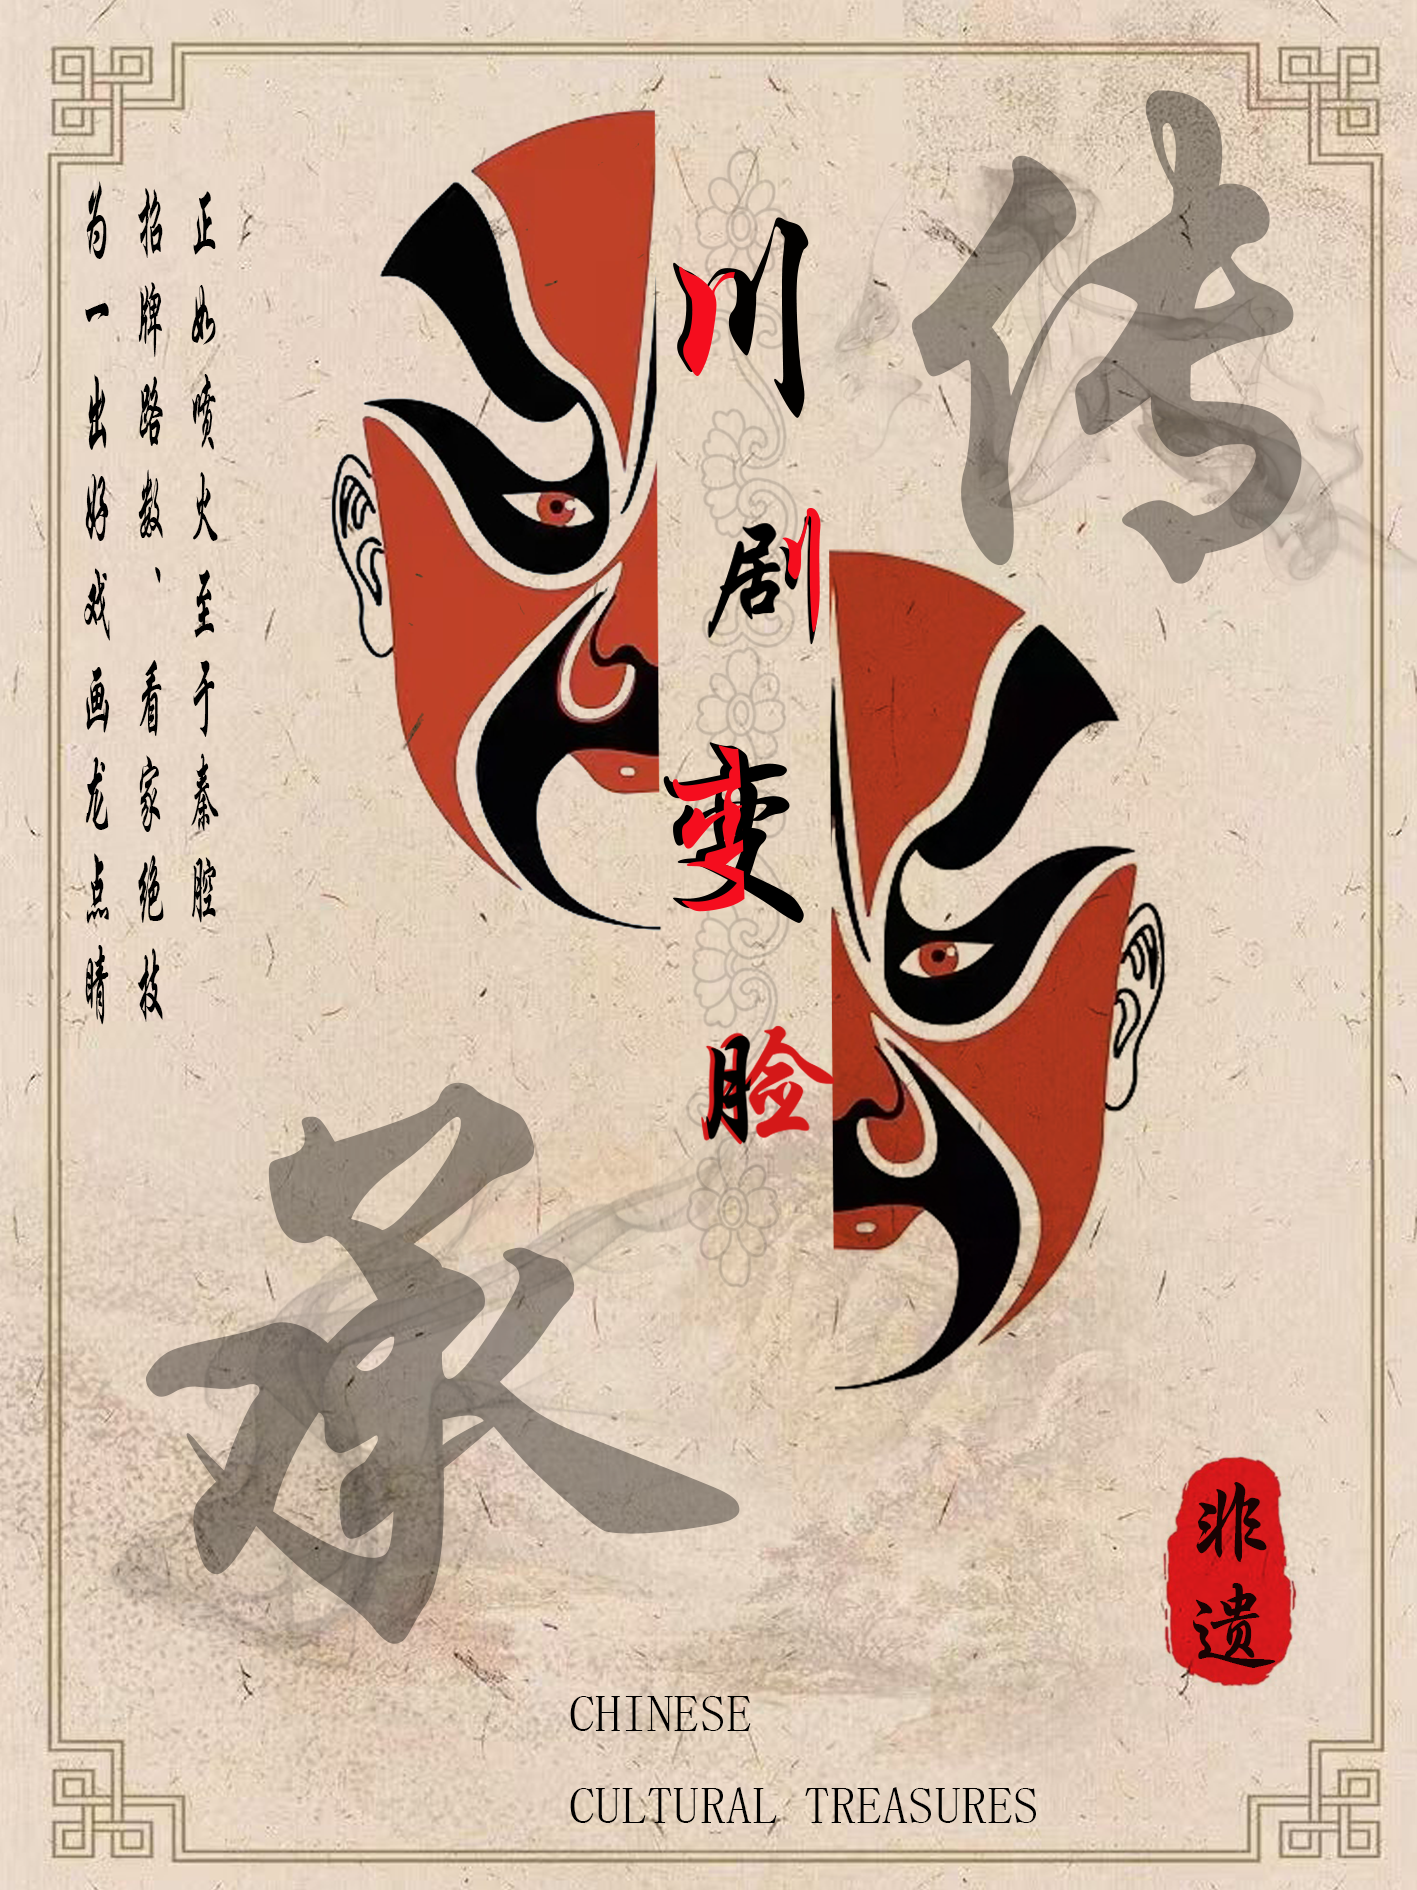 传
承
川剧变脸
正如喷火至于秦腔
招牌路数、看家绝技
为一出好戏画龙点睛
非遗
CHINESE
CULTURAL TREASURES